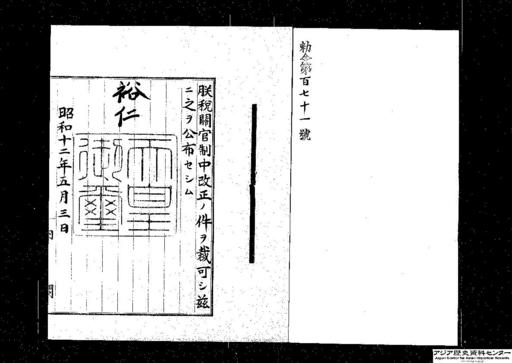 勅令第百七十一號
朕税關官制中改正ノ件ヲ裁可シ茲
ニ之ヲ公布セシム
裕仁
天皇御璽
昭和十二年五月三日
内閣
アジア歴史資料センター
Japan Center for Asian Historical Records